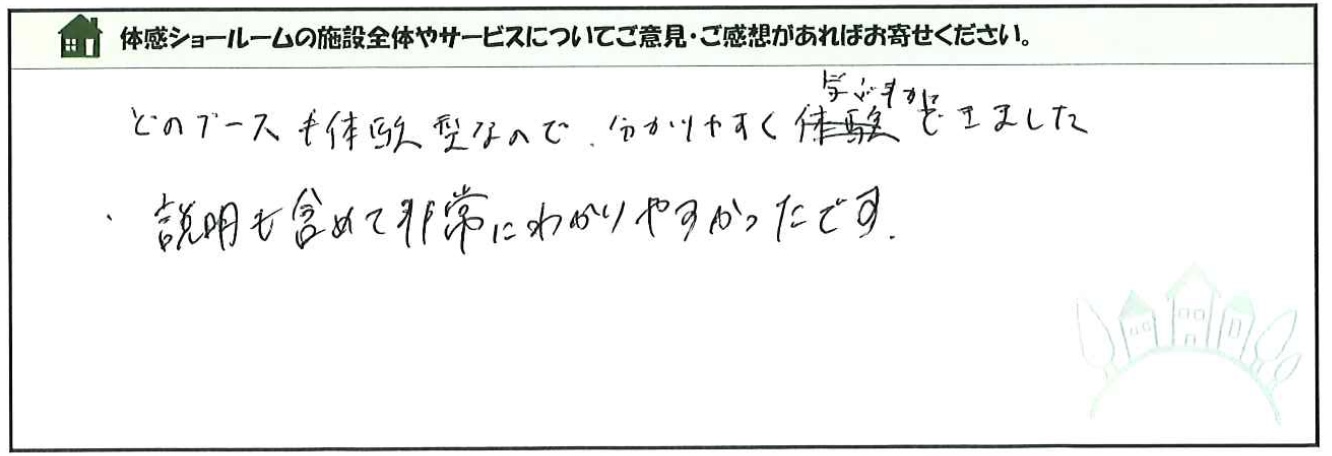 体感ショールームの施設全体やサービスについてご意見・ご感想があればお寄せください。
どのブースも体験型なので、分かりやすく体験できました
説明も含めて非常にわかりやすかったです。